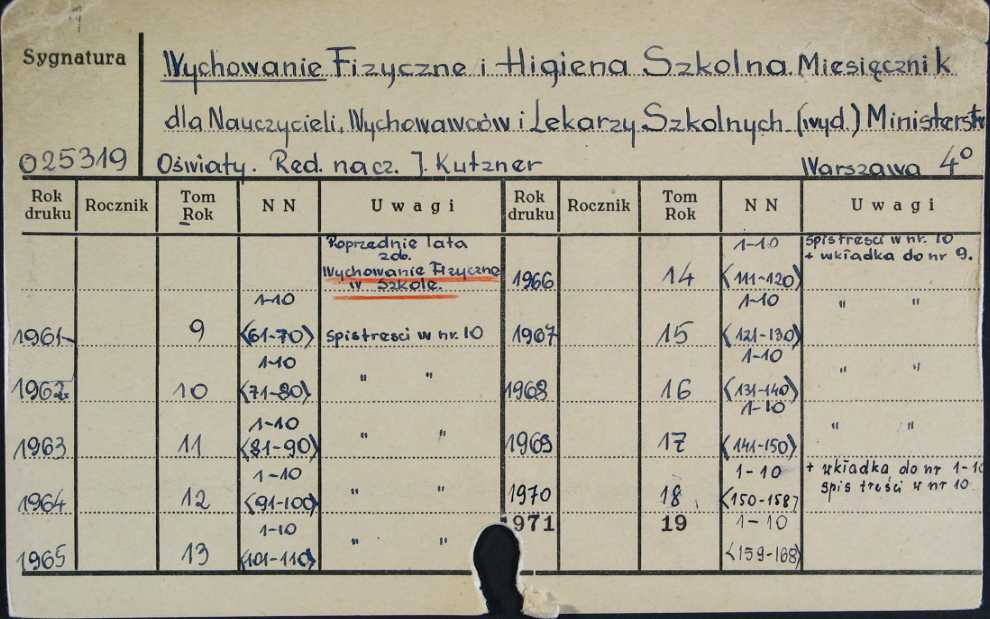 Sygnatura
Wychowanie Fizyczne i Higiena Szkolna. Miesięcznik
dla Nauczycieli, Wychowawców i Lekarzy Szkolnych (wyd.) Ministerstw
025319 Oświaty. Red. nacz. J. Kutzner Warszawa 4°
Rok druku Rocznik Tom Rok NN Uwagi Rok druku Rocznik Tom Rok NN Uwagi
Poprzednie lata
zob.
Wychowanie Fizyczne
w Szkole.
1961 9 1-10 <61-70> spis treści w nr. 10
1962 10 1-10 <71-80> " "
1963 11 1-10 <81-90> " "
1964 12 1-10 <91-100> " "
1965 13 1-10 <101-110> " "
1966 14 1-10 <111-120> spis treści w nr. 10
+ wkładka do nr 9.
1967 15 1-10 <121-130> " "
1968 16 1-10 <131-140> " "
1969 17 1-10 <141-150> " "
1970 18 1-10 <150-158> + wkładka do nr 1-10
spis treści w nr 10
1971 19 1-10 <159-168>